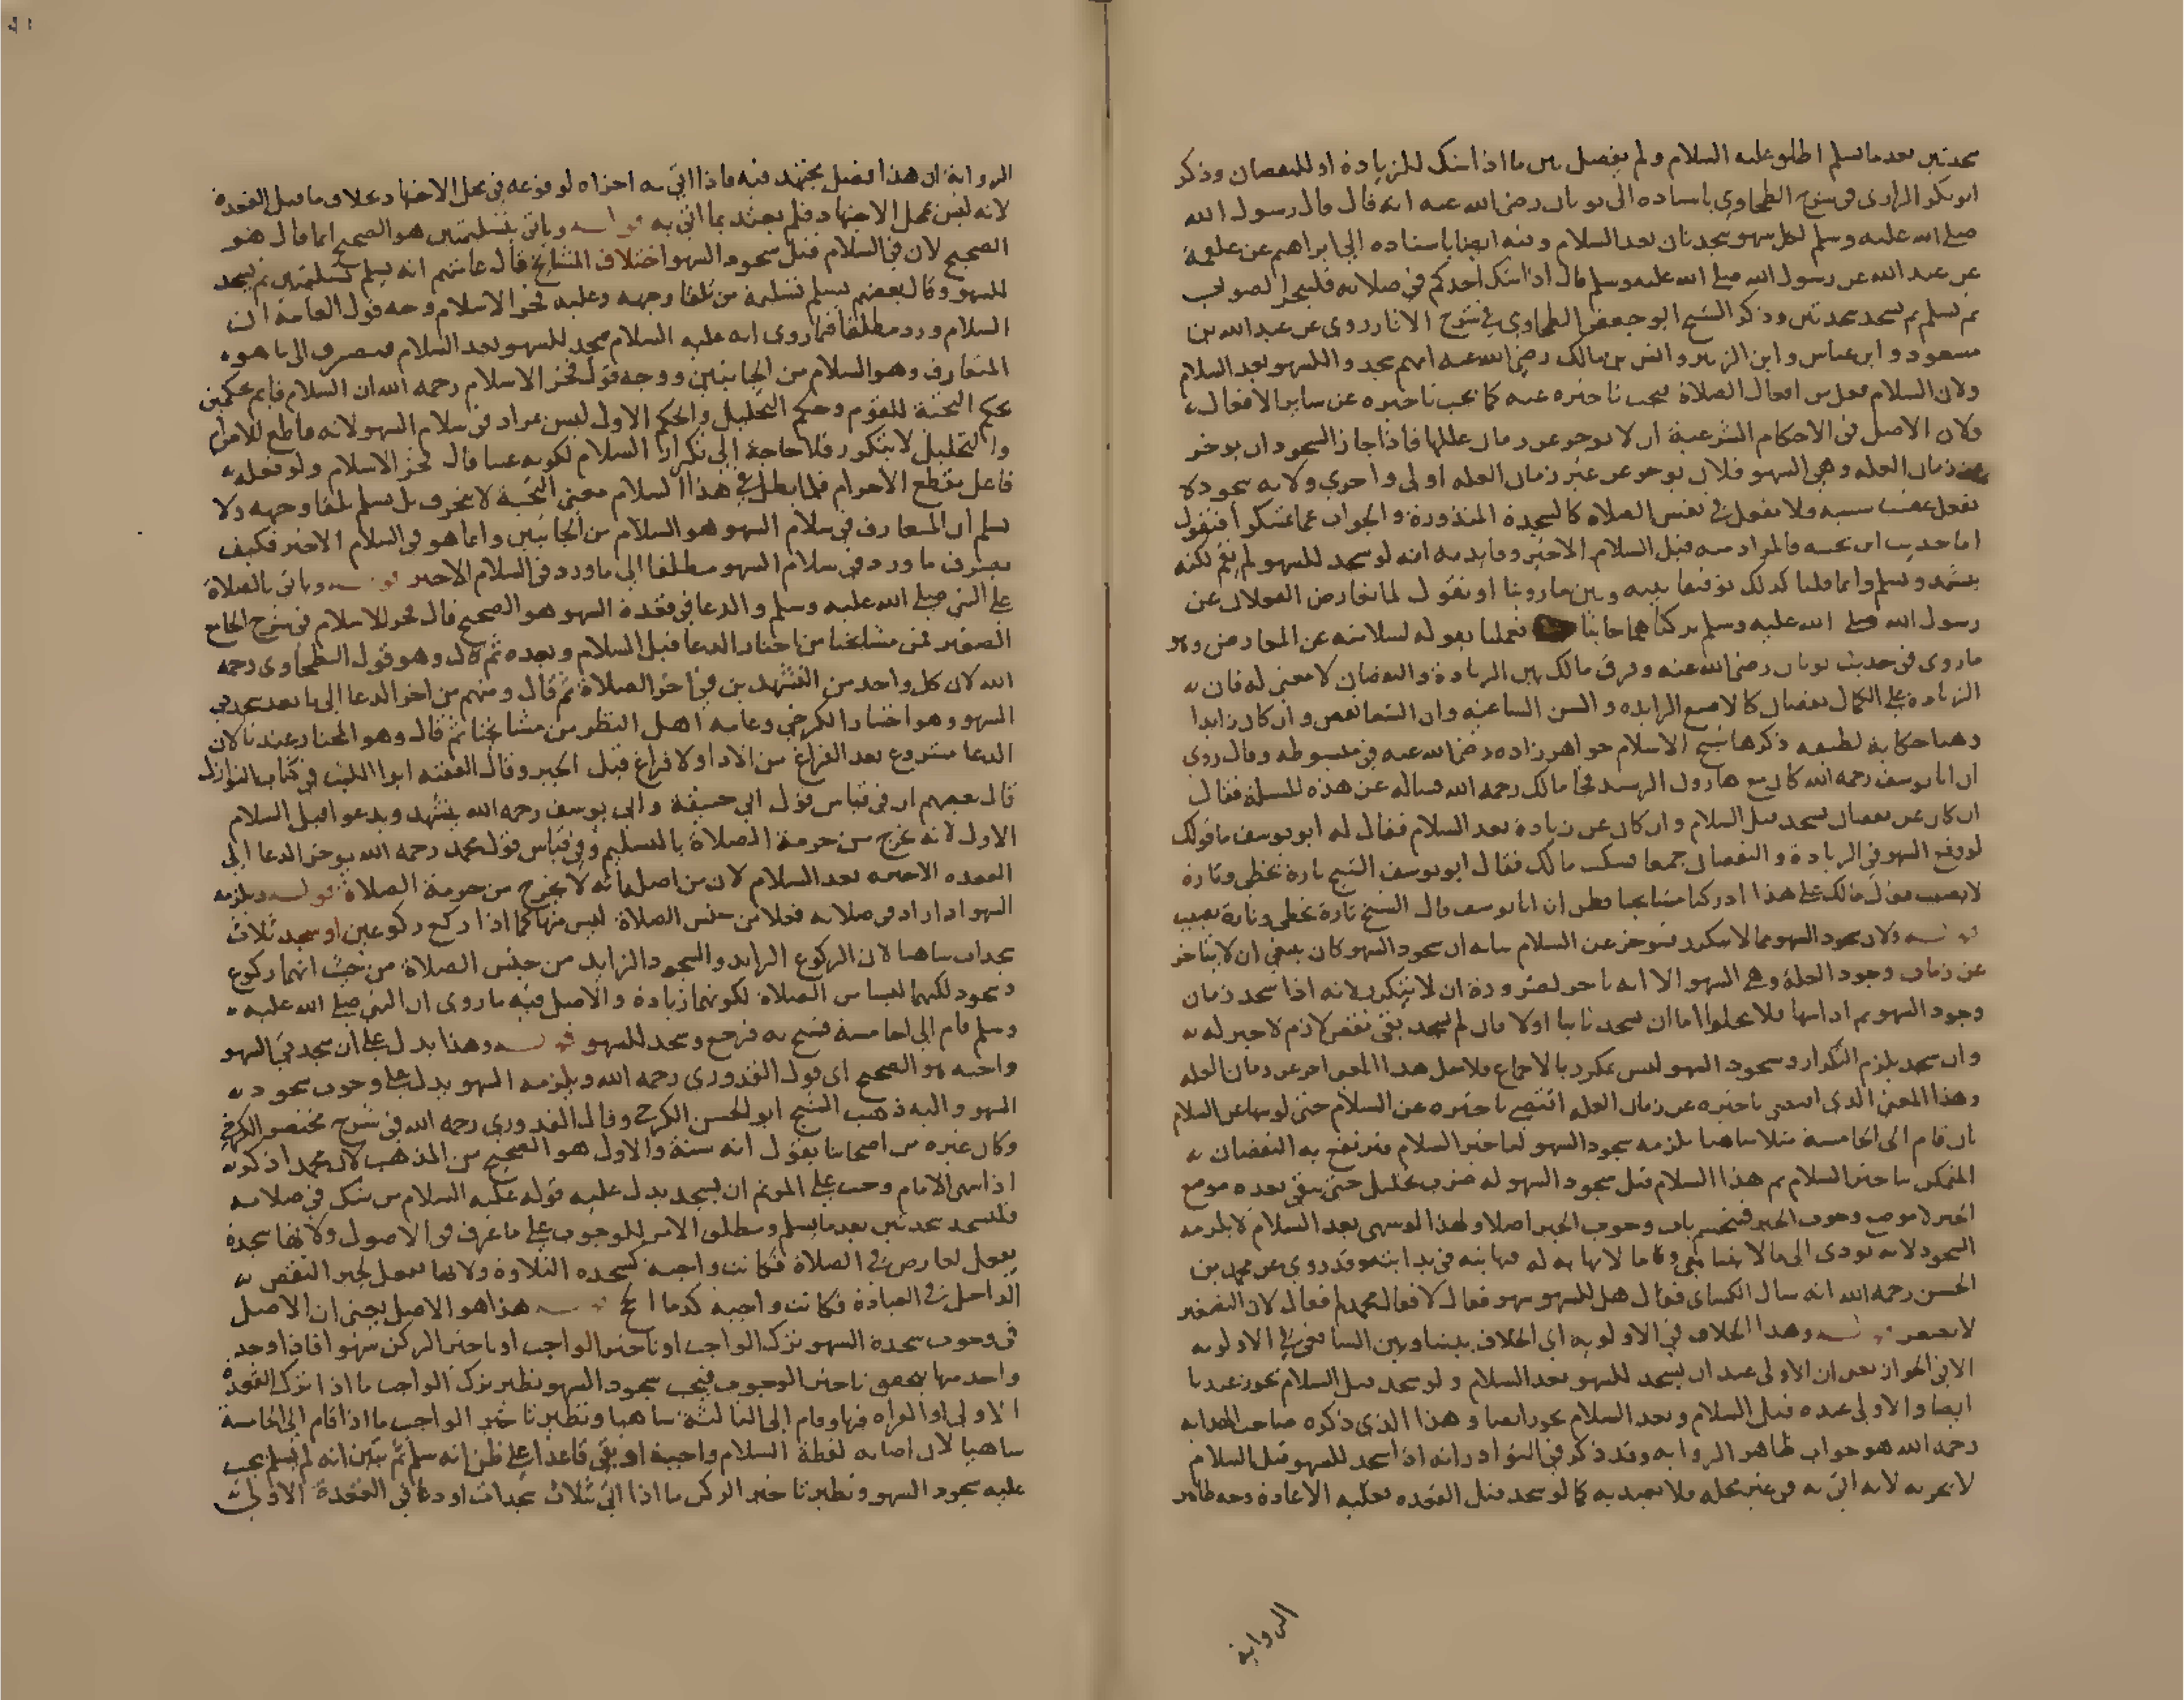 سجدتين بعد ما يسلم اطلق عليه السلام ولم يفصل بين ما اذا شك للزيادة او للنقصان وذكر
ابو بكر الرازى فى شرح الطحاوي باسناده الى ثوبان رضى الله عنه انه قال قال رسول الله
صلى الله عليه وسلم لكل سهو سجدتان بعد السلام وفيه ايضا باسناده الى ابراهيم عن علقمة
عن عبد الله عن رسول الله صلى الله عليه وسلم قال اذا شك احدكم في صلاته فليتحر الصواب
ثم يسلم ثم يسجد سجدتين وذكر الشيخ ابو جعفر الطحاوي في شرح الاثار روى عن عبد الله بن
مسعود وابن عباس وابن الزبير وانس بن مالك رضى الله عنه انهم سجدوا للسهو بعد السلام
ولان السلام فعل من افعال الصلاة فيجب تاخيره عنه كما يجب تاخيره عن ساير الافعال
ولان الاصل فى الاحكام الشرعية ان لا يوخر عن زمان عللها فاذا جاز السجود ان يوخر
عن زمان العله وهي السهو فلان يوخر عن غير زمان العله اولى واحري ولانه سجود لا
يفعل عقيب سببه فلا يفعل في نفس الصلاة كالسجدة المنذورة والجواب عما تمسكوا فنقول
اما حديث ابن بحينة فالمراد منه قبل السلام الاخير وفايدته انه لو سجد للسهو لم يقم لكنه
يتشهد ويسلم وانما قلنا كذلك توفيقا بينه وبين ما روينا او نقول لما تعارض الفعلان عن
رسول الله صلى الله عليه وسلم تركناهما جانبا فعملنا بقوله لسلامته عن المعارض وهو
ما روى في حديث ثوبان رضى الله عنه وفرق مالك بين الزيادة والنقصان لا معنى له فان
الزيادة على الكمال نقصان كالاصبع الزايده والسن الشاغية وان النقصان وان كان زايدا
وهنا حكاية لطيفه ذكرها شيخ الاسلام خواهر زاده رضى الله عنه في مبسوطه وقال روى
ان ابا يوسف رحمه الله كان مع هارون الرشيد فجا مالك رحمه الله فساله عن هذه المسلة فقال
ان كان عن نقصان يسجد قبل السلام وان كان عن زيادة بعد السلام فقال له ابو يوسف ما قولك
لو وقع السهو فى الزيادة والنقصان جميعا فسكت مالك فقال ابو يوسف الشيخ تارة يخطى وتارة
لا يصيب فقال مالك على هذا ادركنا مشايخنا فظن ان ابا يوسف قال الشيخ تارة يخطى وتارة يصيب
قوله ولان سجود السهو مما لا يتكرر فيوخر عن السلام بيانه ان سجود السهو كان ينبغى ان لا يتاخر
عن زمان وجود العلة وهي السهو الا انه تاخر لضرورة ان لا يتكرر لانه اذا سجد زمان
وجود السهو ثم اذا سها فلا يخلوا اما ان يسجد ثانيا اولا فان لم يسجد بقي نقص لازم لا جبر له
وان سجد يلزم التكرار وسجود السهو ليس بمكرر بالاجماع فلاجل هذا المعنى اخر عن زمان العله
وهذا المعنى الذي اقتضى تاخيره عن زمان العله اقتضى تاخيره عن السلام حتى لو سها عن السلام
بان قام الى الخامسة مثلا ساهيا يلزمه سجود السهو لتاخير السلام فيرتفع به النقصان
المتمكن بتاخير السلام ثم هذا السلام قبل سجود السهو له ضرب تحليل حتى يبقى بعده موضع
الجبر لا موضع وجوب الجبر فينحسم باب وجوب الجبر اصلا ولهذا لو سهى بعد السلام لا يلزمه
السجود لانه يودى الى ما لا يتناهى وما لا نهاية له فنهايته فى بدايته وقد روي عن محمد بن
الحسن رحمه الله انه سال الكسائ فقال هل للسهو سهو فقال لا فقال محمد لم فقال لان التصغير
لا يصغر قوله وهذا الخلاف في الاولوية اي الخلاف بيننا وبين الشافعى في الاولوية
لا فى الجواز يعنى ان الاولى عندنا ان يسجد للسهو بعد السلام ولو سجد قبل السلام يجوز عندنا
ايضا والاولى عنده قبل السلام وبعد السلام يجوز ايضا وهذا الذى ذكره صاحب الهداية
رحمه الله هو جواب ظاهر الرواية وقد ذكر في النوادر انه اذا سجد للسهو قبل السلام
لا يجزيه لانه اتى به في غير محله فلا يعتد به كما لو سجد قبل القعده فعليه الاعادة وجه ظاهر
الرواية
الرواية ان هذا فصل مجتهد فيه فاذا اتى به اجزاه لوقوعه في محل الاجتهاد بخلاف ما قبل القعدة
لانه ليس بمحل الاجتهاد فلم يعتد بما اتى به قوله وياتى بتسليمتين هو الصحيح انما قال هو
الصحيح لان في السلام قبل سجود السهو اختلاف المشايخ قال عامتهم انه يسلم تسليمتين ثم يسجد
للسهو وقال بعضهم يسلم تسليمة من تلقا وجهه وعليه فخر الاسلام وجه قول العامة ان
السلام ورد مطلقا فيما روى انه عليه السلام سجد للسهو بعد السلام فينصرف الى ما هو
المتعارف وهو السلام من الجانبين ووجه قول فخر الاسلام رحمه الله ان السلام قايم بحكمين
بحكم التحية للقوم وحكم التحليل والحكم الاول ليس بمراد فى سلام السهو لانه قاطع للاحرام
والتحليل لا يتكرر فلا حاجة الى تكرار السلام لكونه عبثا قال فخر الاسلام ولو فعله
فاعل يقطع الاحرام فلما بطل في هذا السلام معنى التحية لا ينحرف بل يسلم تلقا وجهه ولا
نسلم ان المتعارف في سلام السهو هو السلام من الجانبين وانما هو في السلام الاخير فكيف
يصرف ما ورد فى سلام السهو مطلقا الى ما ورد في السلام الاخير قوله وياتى بالصلاة
على النبي صلى الله عليه وسلم والدعا فى قعدة السهو هو الصحيح قال فخر الاسلام فى شرح الجامع
الصغير فمن مشايخنا من اختار الدعا قبل السلام وبعده ثم قال وهو قول الطحاوى رحمه
الله لان كل واحد من التشهدين في اخر الصلاة ثم قال ومنهم من اخر الدعا الى ما بعد سجدتى
السهو وهو اختيار الكرخي وعامه اهل النظر من مشايخنا ثم قال وهو المختار عندنا لان
الدعا مشروع بعد الفراغ من الادا ولا فراغ قبل الجبر وقال الفقيه ابوا الليث فى كتاب النوازل
قال بعضهم ان فى قياس قول ابي حنيفة وابى يوسف رحمه الله يتشهد ويدعوا قبل السلام
الاول لانه يخرج من حرمة الصلاة بالتسليم وفي قياس قول محمد رحمه الله يوخر الدعا الى
القعده الاخيره بعد السلام لان من اصله انه لا يخرج من حرمة الصلاة قوله ويلزمه
السهو اذا زاد فى صلاته فعلا من جنس الصلاة ليس منها كما اذا ركع ركوعين او سجد ثلاث
سجدات ساهيا لان الركوع الزايد والسجود الزايد من جنس الصلاة من حيث انهما ركوع
وسجود لكنهما ليسا من الصلاة لكونهما زيادة والاصل فيه ما روى ان النبي صلى الله عليه
وسلم قام الى الخامسة فسبح به فرجع وسجد للسهو قوله وهذا يدل على ان سجدتى السهو
واجبه هو الصحيح اى قول القدوري رحمه الله ويلزمه السهو يدل على وجوب سجود
السهو واليه ذهب الشيخ ابو الحسن الكرخي وقال القدوري رحمه الله فى شرح مختصر الكرخي
وكان غيره من اصحابنا يقول انه سنة والاول هو الصحيح من المذهب لان محمدا ذكر
اذا سهى الامام وجب على الموتم ان يسجد يدل عليه قوله عليه السلام من شك في صلاته
فليسجد سجدتين بعد ما يسلم ومطلق الامر للوجوب على ما عرف في الاصول ولانها سجدة
تفعل لعارض في الصلاة فكانت واجبة كسجده التلاوة ولانها تفعل لجبر النقص
الداخل في العبادة فكانت واجبه كدما الحج قوله هذا هو الاصل يعنى ان الاصل
فى وجوب سجدة السهو ترك الواجب او تاخير الواجب او تاخير الركن سهوا فاذا وجد
واحد منها يتحقق تاخير الوجوب فيجب سجود السهو نظير ترك الواجب ما اذا ترك القعدة
الاولى او القراه فيها وقام الى الثالثة ساهيا ونظير تاخير الواجب ما اذا قام الى الخامسة
ساهيا لان اصابه لفظة السلام واجبة او بقى قاعدا على ظن انه سلم ثم تبين انه لم يسلم يجب
عليه سجود السهو ونظير تاخير الركن ما اذا اتى ثلاث سجدات او دعا فى القعدة الاولى